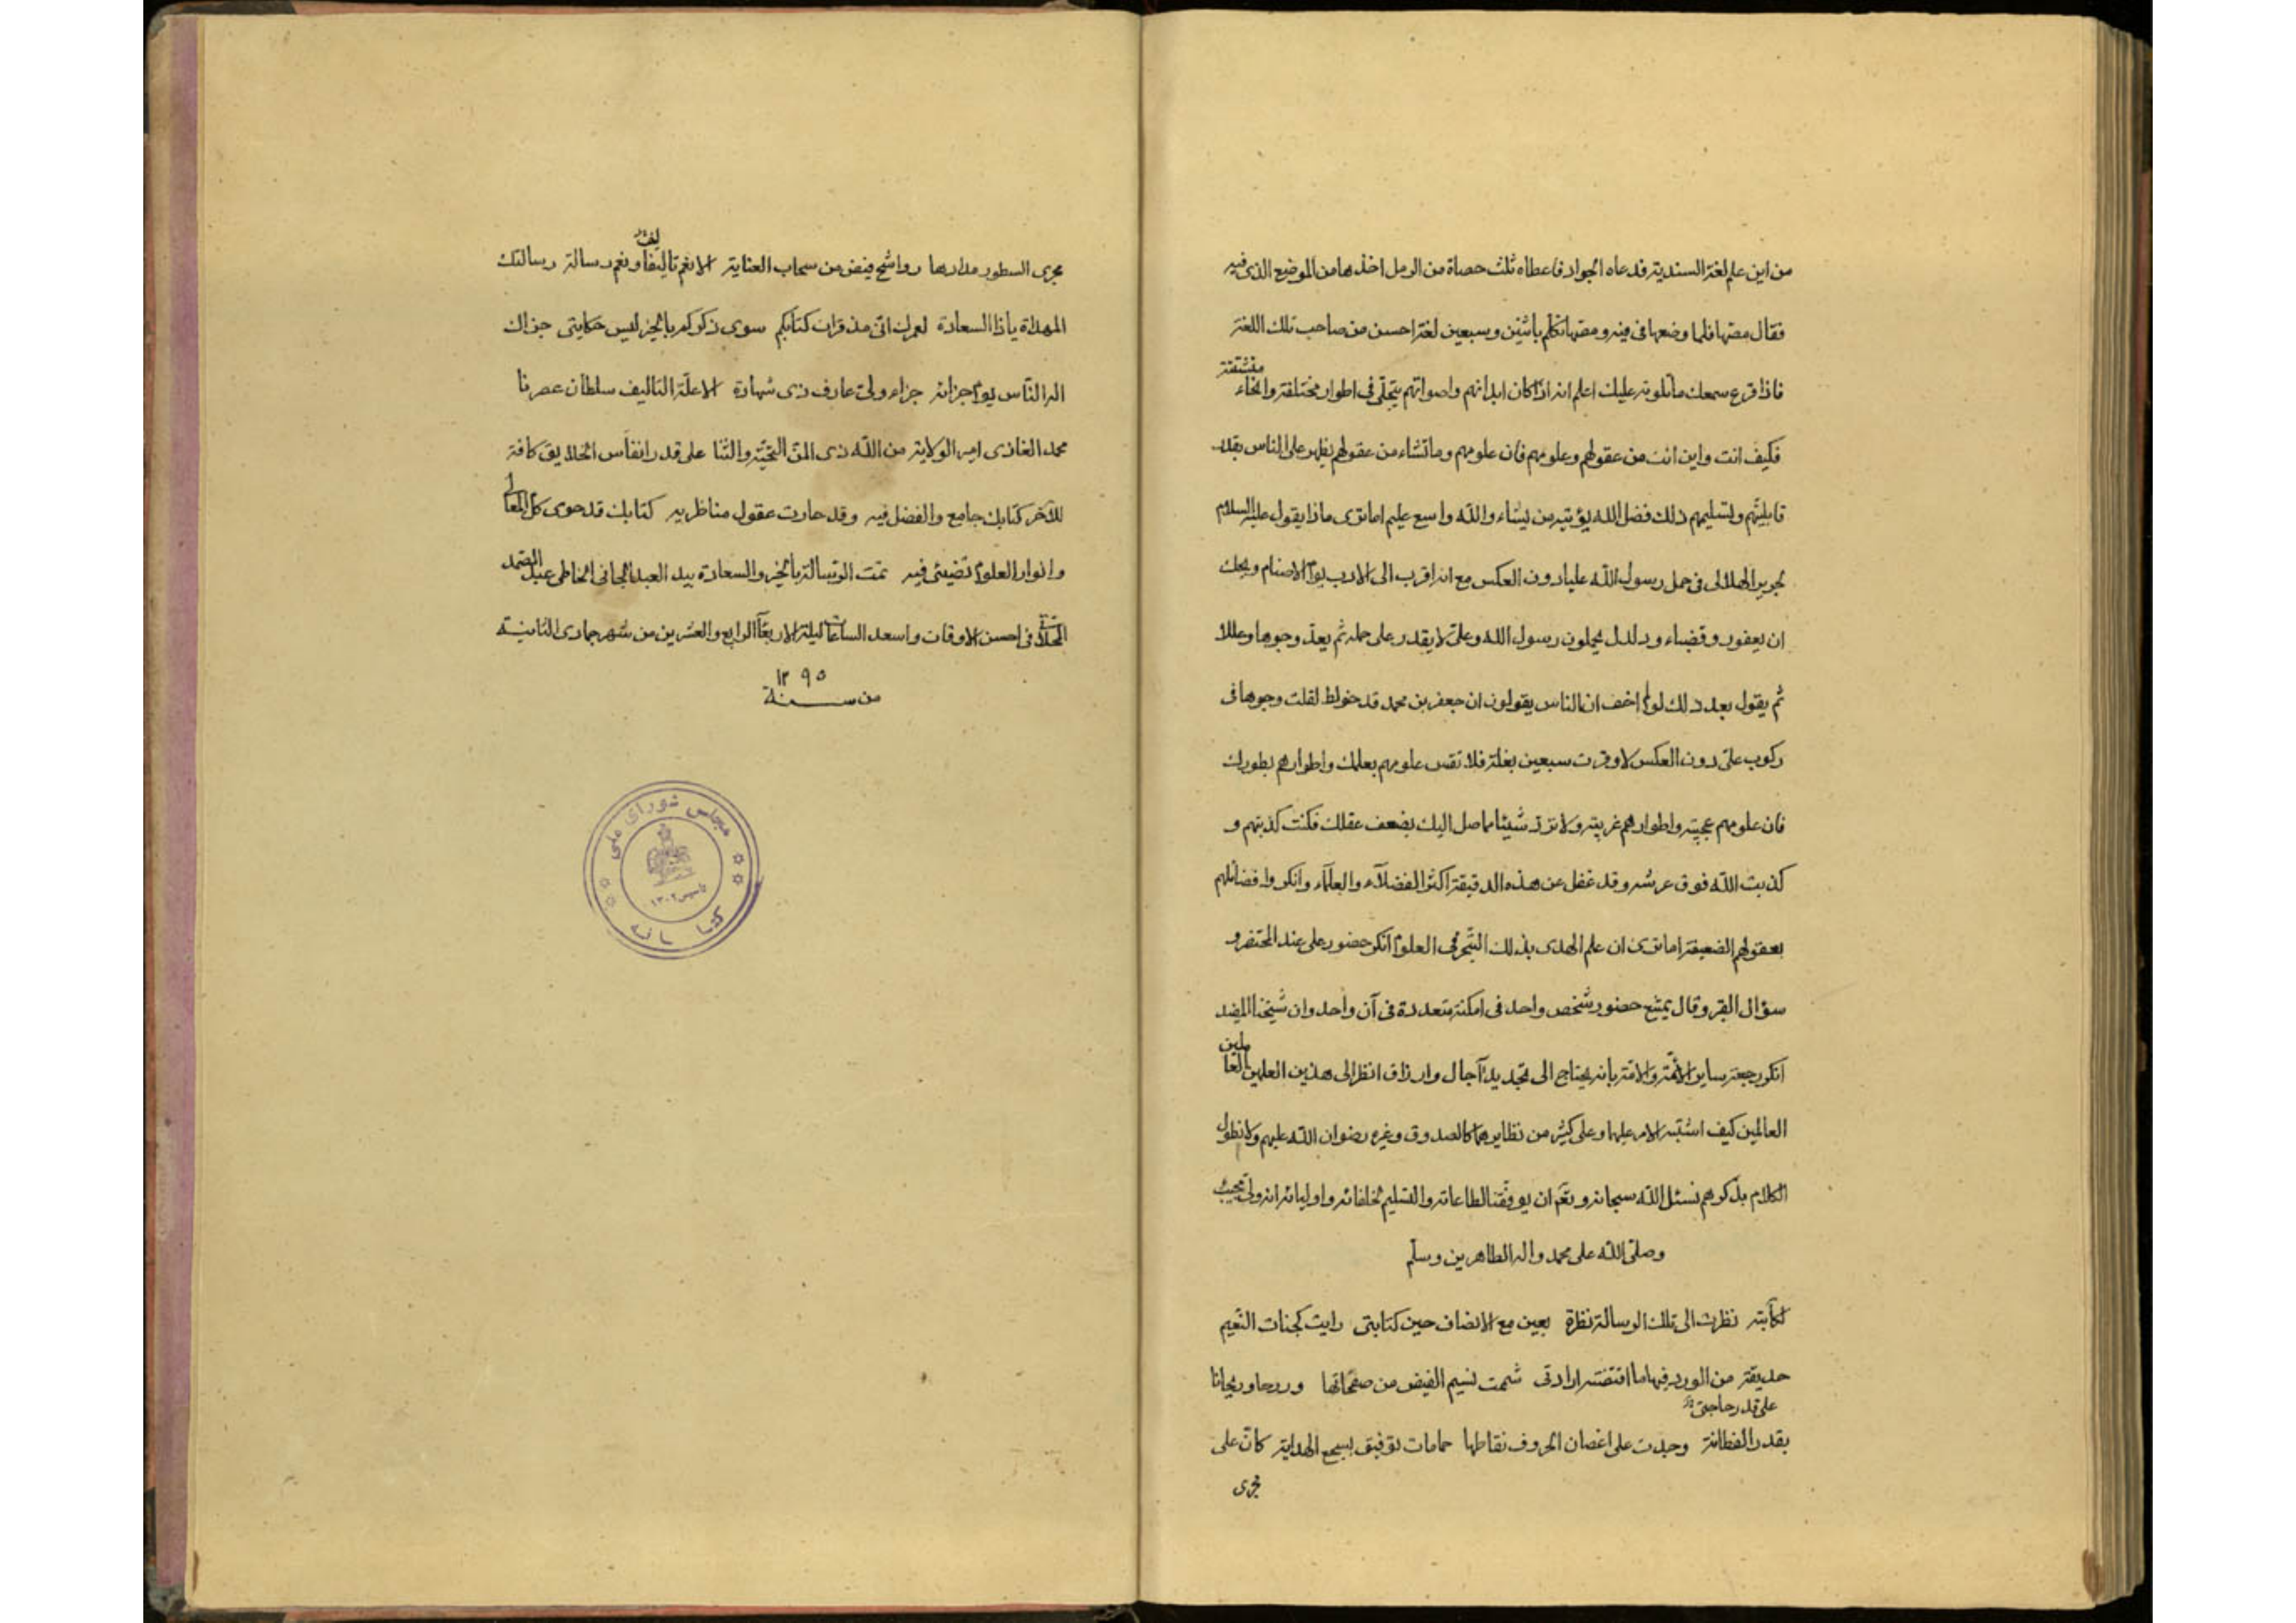 من اين علم لغة السندية فدعاه الجواد فاعطاه ثلث حصاة من الرمل اخذها من الموضع الذى فيه
فقال مصّها فلما وضعها فى فيه ومصّها تكلم باثنين وسبعين لغة احسن من صاحب تلك اللغة
فاذا قرع سمعك ما تلوته عليك اعلم انه اذا كان ابدانهم واصواتهم يتجلّى فى اطوار مختلفة وانحاء
فكيف انت واين انت من عقولهم وعلومهم فان علومهم وما تشاء من عقولهم يظهر على الناس بقدر
قابليتهم وتسليمهم ذلك فضل الله يؤتيه من يشاء والله واسع عليم اما ترى ماذا يقول عليه السلام
لحرير الهلالى فى حمل رسول الله عليا دون العكس مع انه اقرب الى الادب يوم الاصنام ويحك
ان يعفور وقضباء ودلدل يحملون رسول الله وعلى لا يقدر على حمله ثم يعدّ وجوها وعللا
ثم يقول بعد ذلك لولم اخف ان الناس يقولون ان جعفر بن محمد قد خولط لقلت وجوها فى
ركوب علىّ دون العكس لاوقرت سبعين بغلة فلا تقس علومهم بعلمك واطوارهم بطورك
فان علومهم عجيبة واطوارهم غريبة ولا تردّ شيئا مما صل اليك بضعف عقلك فكنت كذبتهم و
كذبت الله فوق عرشه وقد غفل عن هذه الدقيقة اكثر الفضلاء والعلماء وانكروا فضائلهم
بعقولهم الضعيفة اما ترى ان علم الهدى بذلك التبحر فى العلوم انكر حضور على عند المحتضر و
سؤال القبر وقال يمتنع حضور شخص واحد فى امكنة متعددة فى آن واحد وان شيخنا المفيد
انكر رجعة ساير الائمّة والامّة بانه يحتاج الى تجديد آجال وارزاق انظر الى هذين العلمين العاملين
العالمين كيف اشتبه الامر عليهما وعلى كثير من نظايرهما كالصدوق وغيره رضوان الله عليهم ولا نطول
الكلام بذكرهم نسئل الله سبحانه وتعم ان يوفقنا لطاعاته والتسليم لخلفائه واوليائه انه ولى مجيب
وصلّى الله على محمد واله الطاهرين وسلّم
لكاتبه نظرت الى تلك الرسالة نظرة بعين مع الانصاف حين كتابتى رايت كجنات النعيم
حديقة من الورد فيها ما اقتضته ارادتى شممت نسيم الفيض من صفحاتها وردحا وريحانا
على قدر حاجتى
بقدر الفطانة وجدت على اغصان الحروف نقاطها حمامات توفيق بسجع الهداية كان على
مجرى
مجرى السطور مدادها رواشح فيض من سحاب العناية الا نعم تاليفا ونعم رسالة رسالتك
المهداة ياذا السعادة لعمرك انى مذ قرات كتابكم سوى ذكركم بالخير ليس حكايتى جزاك
اله الناس يوم جزائه جزاء ولى عارف ذى شهادة الا علّة التاليف سلطان عصرنا
محمد الغازى امير الولاية من الله ذى المنّ التحيّة والثنا على قدر انفاس الخلايق كافة
للآخر كتابك جامع والفضل فيه وقد حارت عقول مناظريه كتابك قد حوى كل المعالى
وانوار العلوم تضيئى فيه تمت الرسالة بالخير والسعادة بيد العبد الجانى الخاطى عبد الصمد
فى احسن الاوقات واسعد الساعات ليلة الاربعآ الرابع والعشرين من شهر جمادى الثانية
من سنة ١٢٩٥
مجلس شوراى ملى
تأسيس ١٣٠٢
كتابخانه